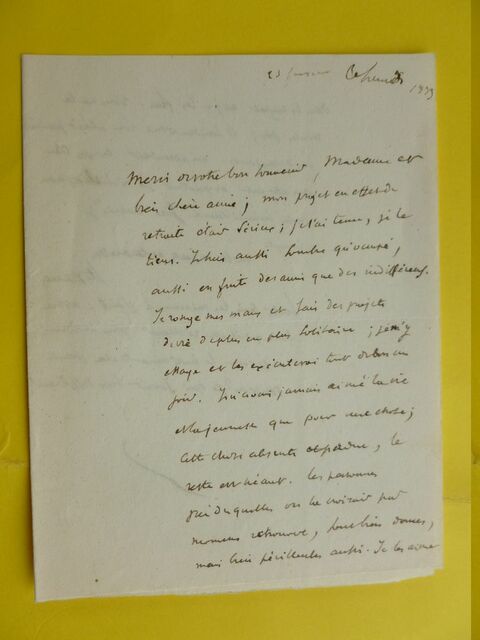 23 janvier Ce lundi 1839
Merci de votre bon souvenir, Madame et
bien chère amie; mon projet en effet de
retraite était sérieux; je l'ai tenu, je le
tiens. Je suis aussi sombre qu'occupé,
aussi en fuite des amis que des indifférents.
Je ronge mes maux et fais des projets
de vie de plus en plus solitaire; j'en
essaye et les exécuterai tout de bon un
jour. Je n'avais jamais aimé la vie
et la jeunesse que pour une chose;
cette chose absente et perdue, le
reste est néant. Les personnes
près desquelles on la croirait par
moments retrouvée, sont bien douces,
mais bien périlleuses aussi. Je les aime